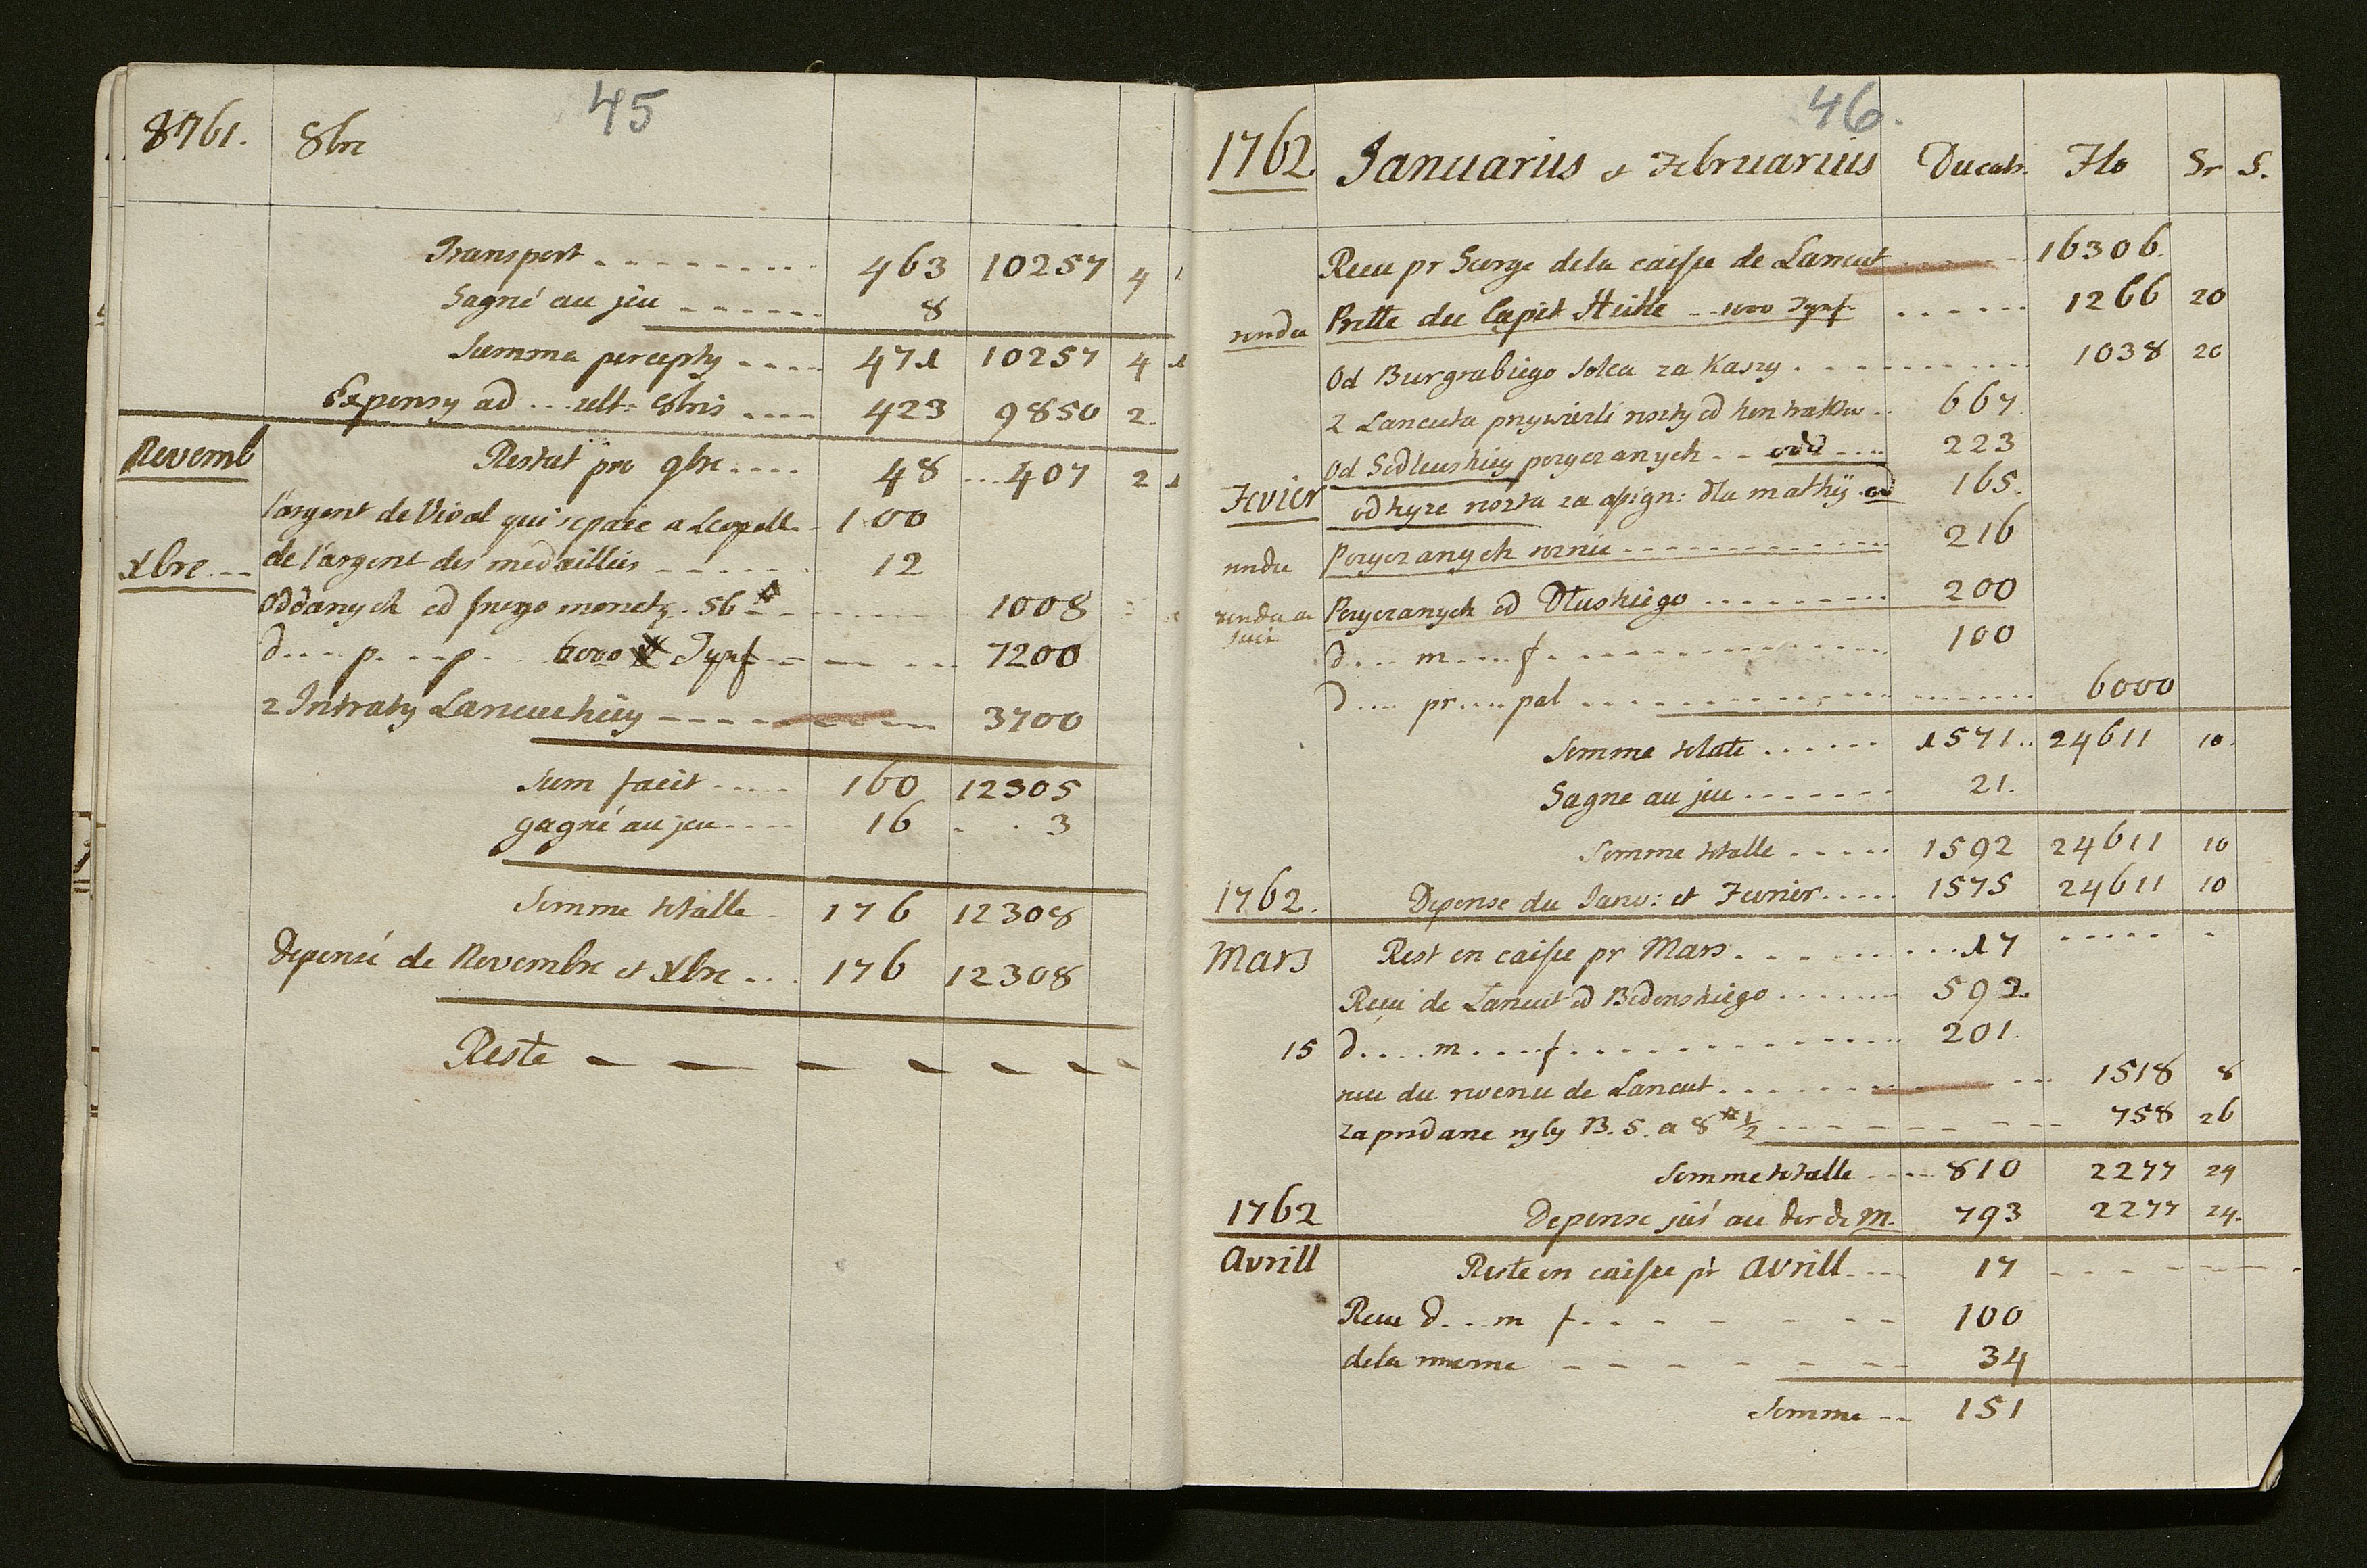 45
8761. 8bre
Transport . . . . . . . . 463 10257 4 1
Gagné au jeu . . . . . . 8
Summa percepty . . . . 471 10257 4 1
Expensy ad . . . ult: 8bris . . . . 423 9850 2.
Novemb Restat pro 9bre . . . . 48 . . . 407 2 1
l'argent de Vidal qui se paie a Leopoll. 100
Xbre de l'argent des medailles 12
Oddanych od monety. 56 # 1008
d . . . p. . . p. 6000 Tynf 7200
z Intraty Lancuckiey 3700
Sum facit . . . . 160 12305
gagné au jeu . . . . 16 . . 3
Somme totalle 176 12308
Depensé de Novembre et Xbre . . . 176 12308
Reste
46.
1762 Januarius et Februarius Ducats. Flo Gr S.
Recu pr Serge dela caisse de Lancut 16306.
rendu Prette du Capit Heike . . 1000 Tynf. 1266 20
Od Burgrabiego Solca za Kaszy 1038 20
z Lancuta przywiezli reszty od kontraktu . . 667
Od Sedleuskiey pozyczanych . . 223
Fevier od teyze reszta za assign: dla mathij 165.
rendu Pozyczanych 216
rendu Pozyczanych od Dłuskiego 200
d . . . m . . . f. 100
d . . . pr . . . pal 6000
Somme totale . . . . . . 1571 . . 24611 10.
Gagne au jeu . . . . . . . 21.
Somme totalle . . . . . 1592 24611 10
1762. Depense du Janv: et Fevrier . . . . . 1575 24611 10
Mars Rest en caisse pr Mars . . . 17
Recu de Lancut od Bedonskiego 592.
15 d . . . . m . . . . f. 201.
recu du revenu de Lancut 1518 8
za przedane ryby B. S. a 8 # 1/2 758 26
Somme totalle 810 2277 24
1762 Depense jus' au der de M. 793 2277 24.
Avrill Reste en caisse pr Avrill . . . . 17
Recu d . . m f. 100
dela meme 34
Somme . . 151